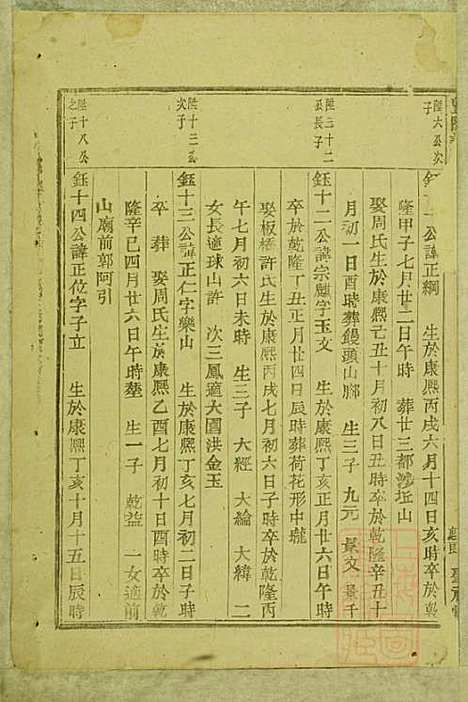 陞六公次子
鈺十一公諱正綱 生於康熙丙戌六月十四日亥時卒於乾
隆甲子七月廿二日午時 葬廿三都 坵山
娶周氏生於康熙己丑十月初八日丑時卒於乾隆辛丑十
月初一日酉時葬饅頭山腳 生三子 九元 景文 景千
陞三十二公長子
鈺十二公諱宗麟字玉文 生於康熙丁亥正月廿六日午時
卒於乾隆丁丑正月廿四日辰時葬荷花形中壠
娶板橋許氏生於康熙丙戌七月初六日子時卒於乾隆丙
午七月初六日未時 生三子 大經 大綸 大緯 二
女長適球山許 次三鳳適大園洪金玉
陞十三公次子
鈺十三公諱正仁字樂山 生於康熙丁亥七月初二日子時
卒 葬 娶周氏生於康熙乙酉七月初十日酉時卒於乾
隆辛巳四月廿六日午時塟 生一子 乾益 一女適前
山廟前郭阿引
陞十八公之子
鈺十四公諱正位字子立 生於康熙丁亥十月十五日辰時